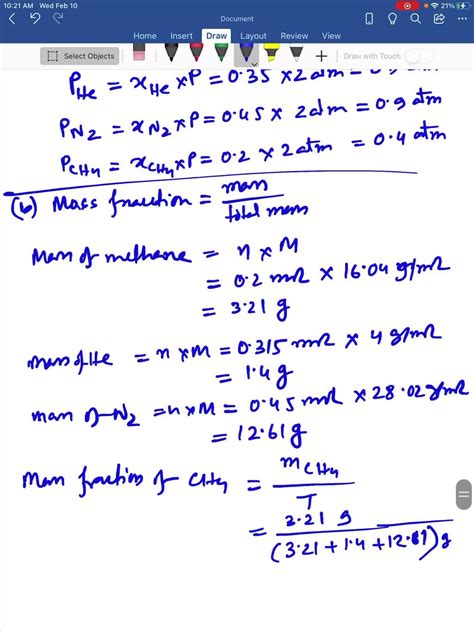 10:21 AM Wed Feb 10
21%
Document
Home Insert Draw Layout Review View
Select Objects
Draw with Touch
P_He = x_He × P = 0.35 × 2 atm =
P_N2 = x_N2 × P = 0.45 × 2 atm = 0.9 atm
P_CH4 = x_CH4 × P = 0.2 × 2 atm = 0.4 atm
(b) Mass fraction = mass
total mass
Mass of methane = n × M
= 0.2 mol × 16.04 g/mol
= 3.21 g
mass of He = n × M = 0.315 mol × 4 g/mol
= 1.4 g
mass of N2 = n × M = 0.45 mol × 28.02 g/mol
= 12.61 g
Mass fraction of CH4 = m_CH4
T
= 3.21 g
(3.21 + 1.4 + 12.61) g